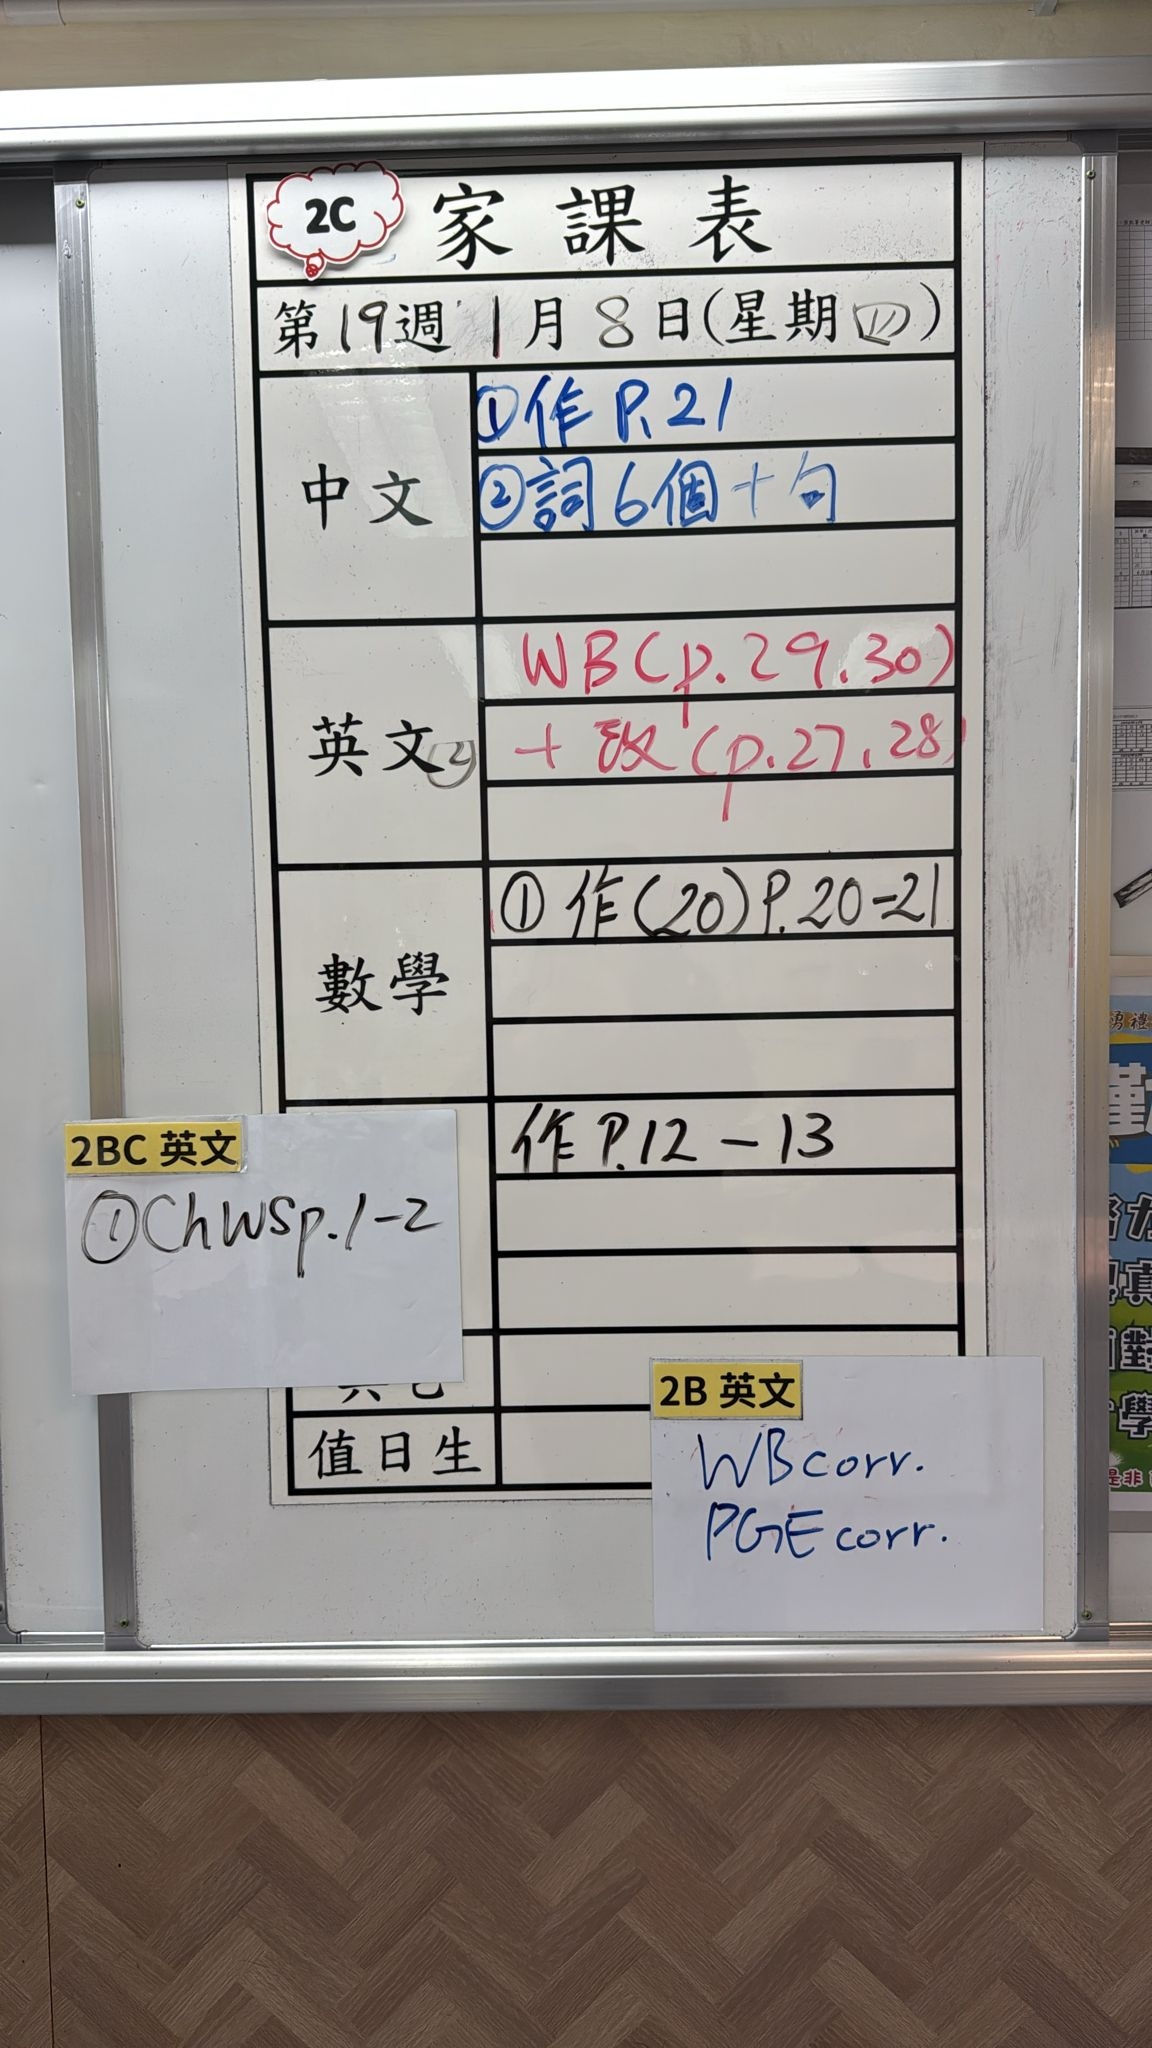 2C 家課表
第19週 1月8日(星期四)
中文
①作 P.21
②詞6個+句
英文
WB(p.29.30)
+改(p.27.28)
數學
①作(20)P.20-21
作P.12-13
2BC 英文
①ChWSp.1-2
值日生
2B 英文
WBcorr.
PGEcorr.